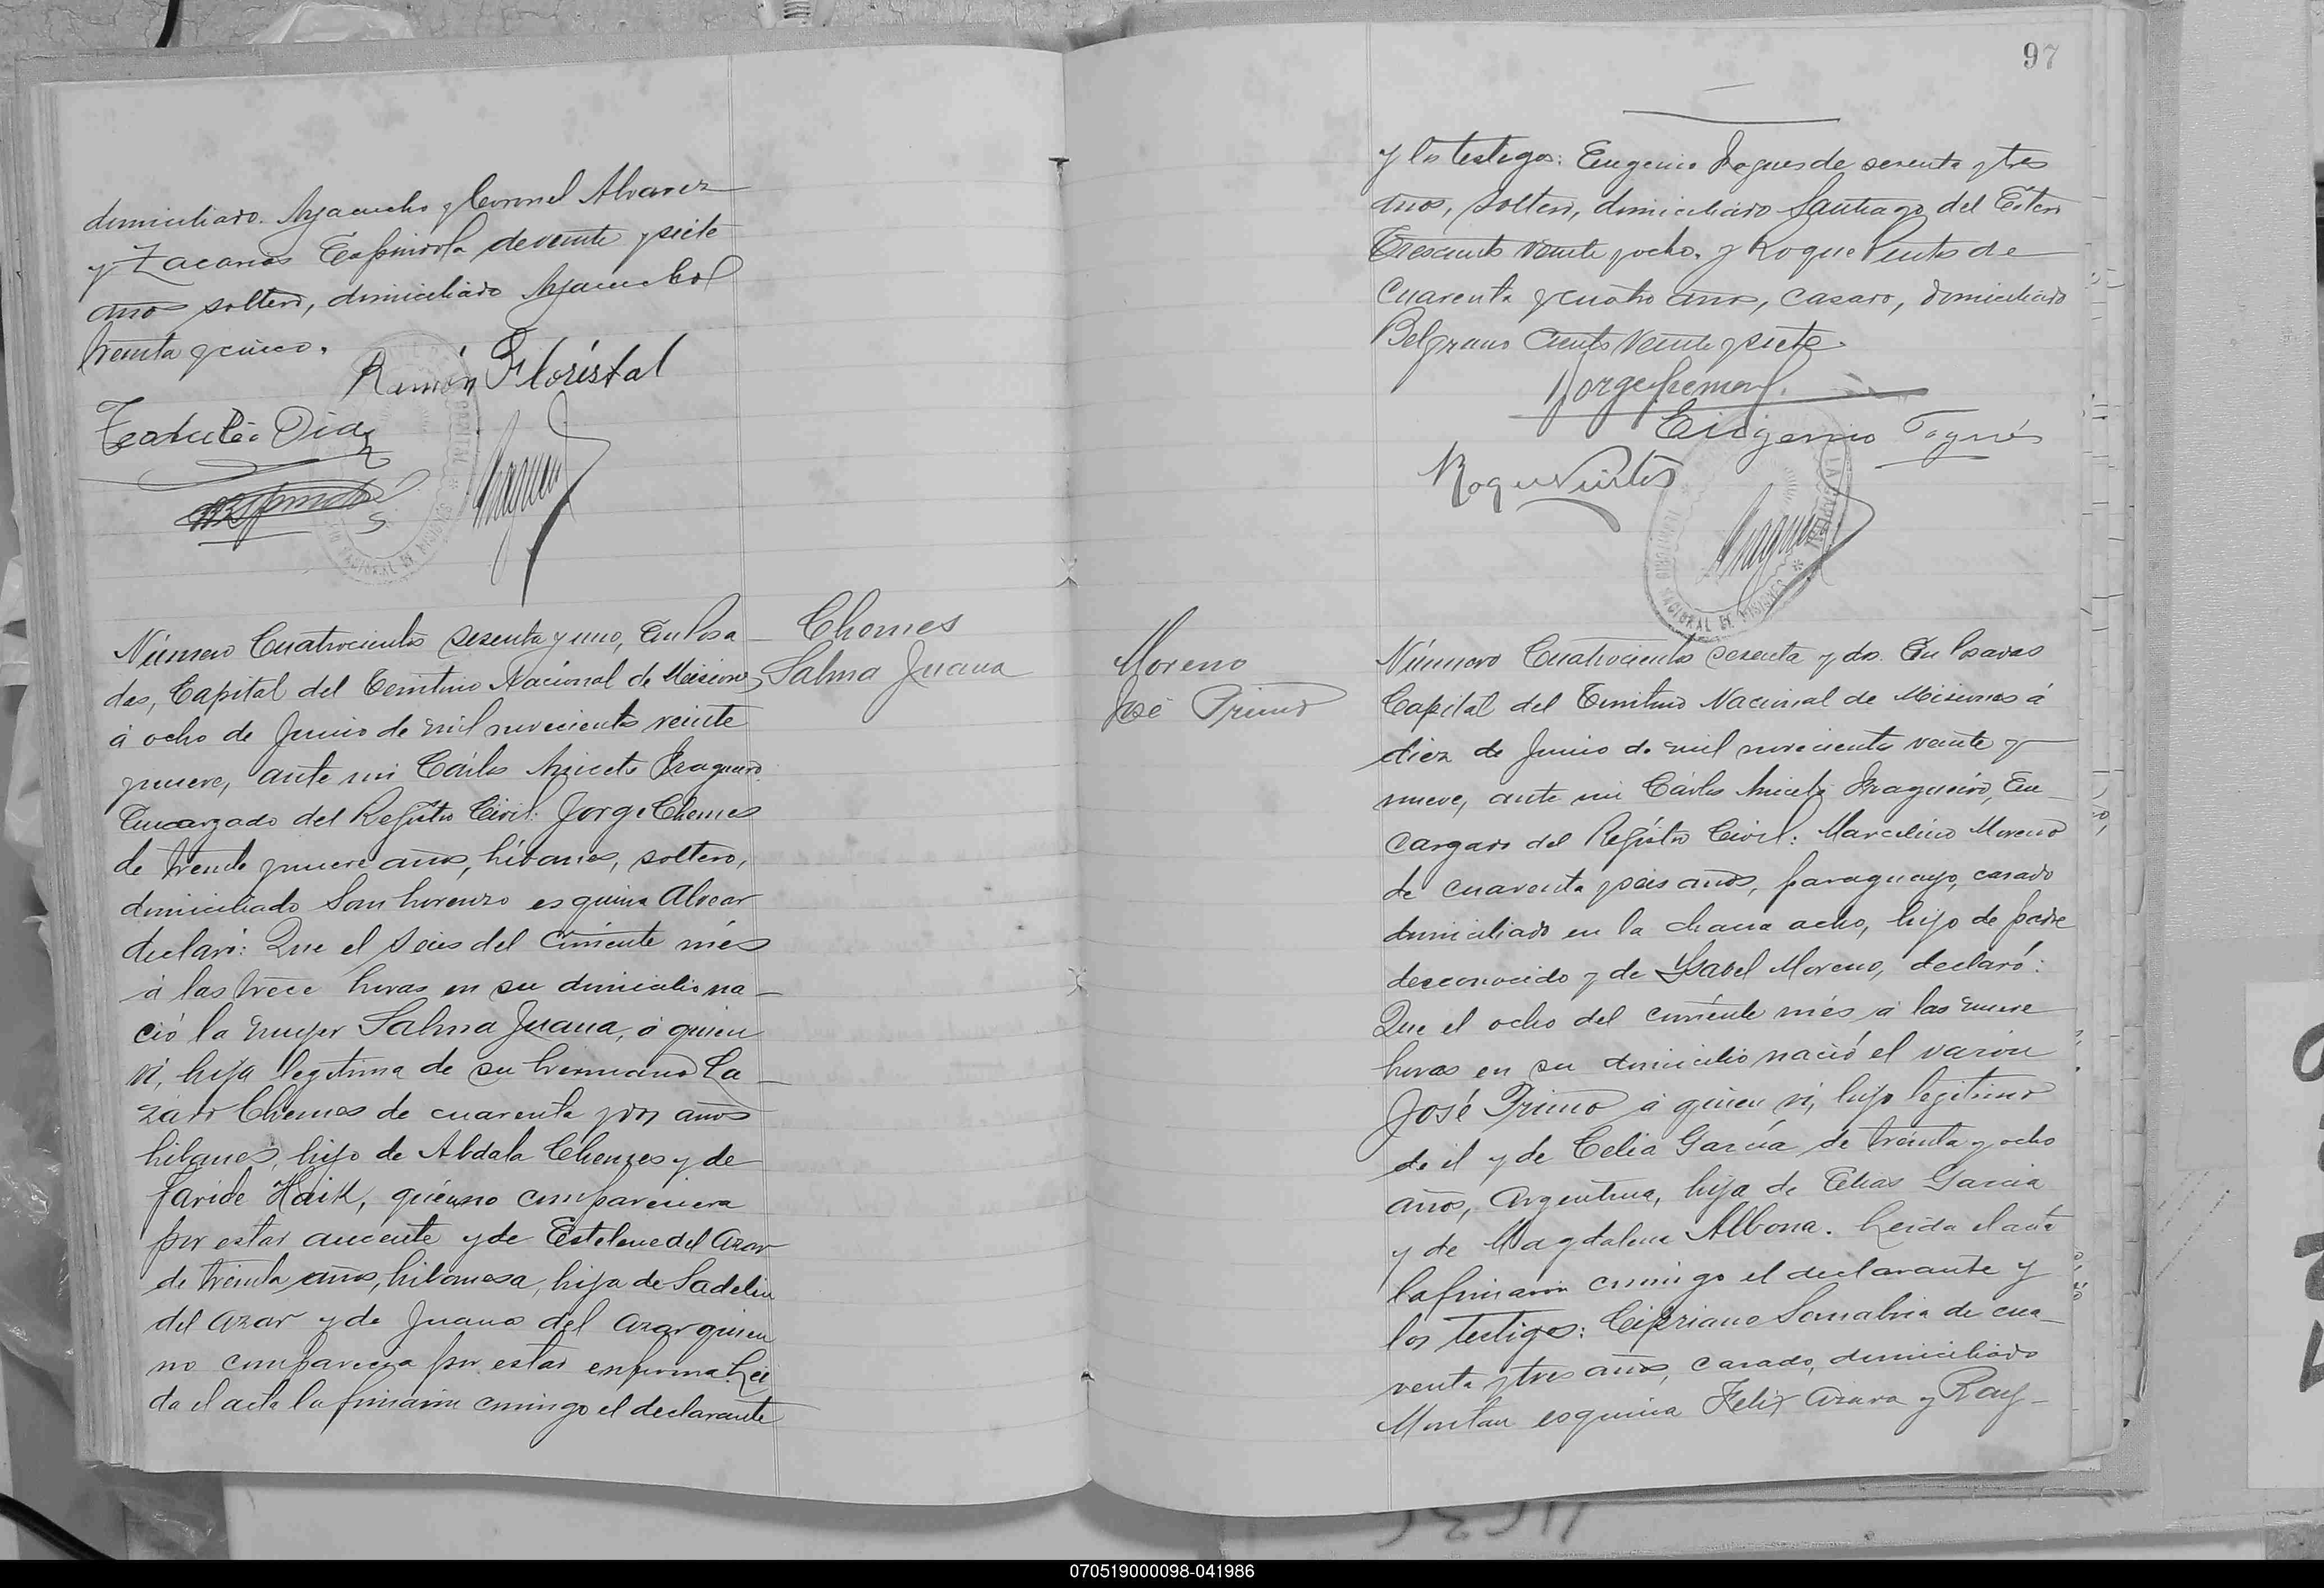 domiciliado. Ayacucho y Coronel Alvarez
y Zacarias Espindola de veinte y siete
años soltero, domiciliado Ayacucho
treinta y cinco.
Ramón Floristal
Teodulio Diaz
Número Cuatrocientos sesenta y uno, En Posa
das, Capital del Territorio Nacional de Misiones,
á ocho de Junio de mil novecientos veinte
y nueve, ante mi Cárlos Aniceto Fragueiro
Encargado del Registro Civil: Jorge Chemes
de treinta y nueve años, libanes, soltero,
domiciliado San Lorenzo esquina Alvear
declaró: Que el seis del corriente més
á las trece horas en su domicilio na
ció la mujer Salma Juana, á quien
ví, hija legitima de su hermano La
zaro Chemes de cuarenta y dos años
libanes, hijo de Abdala Chemes y de
Faride Haik, quien no compareciera
por estar aucente y de Estelene del Azar
de treinta años, libanesa, hija de Sadelin
del Azar y de Juana del Azar quien
no compareciera por estar enferma. Lei
da el acta la firmaron conmigo el declarante
Chemes
Salma Juana
97
y los testigos: Eugenio Fogues de sesenta y tres
años, soltero, domiciliado Santiago del Estero
Trescientos veinte y ocho. y Roque Vientos de
cuarenta y cuatro años, casado, domiciliado
Belgrano Ciento Veinte y siete.
Jorge Chemes
Eugenio Fogués
LA CAPITAL * TERRITORIO NACIONAL DE MISIONES *
Moreno
José Primo
Número Cuatrocientos sesenta y dos. En Posadas
Capital del Territorio Nacional de Misiones á
diez de Junio de mil novecientos veinte y
nueve, ante mi Cárlos Aniceto Fragueiro, En
cargado del Registro Civil: Marcelino Moreno
de cuarenta y seis años, paraguayo, casado
domiciliado en la chacra ocho, hijo de padre
desconocido y de Ysabel Moreno, declaró:
Que el ocho del corriente més á las nueve
horas en su domicilio nació el varón
José Primo á quien ví, hijo legitimo
de él y de Celia García de treinta y ocho
años, Argentina, hija de Elias Garcia
y de Magdalena Albona. Leida el acta
la firmaron conmigo el declarante y
los testigos: Cipriano Sanabria de cua
renta y tres años, casado, domiciliado
esquina Felix Azara y Ray
070519000098-041986